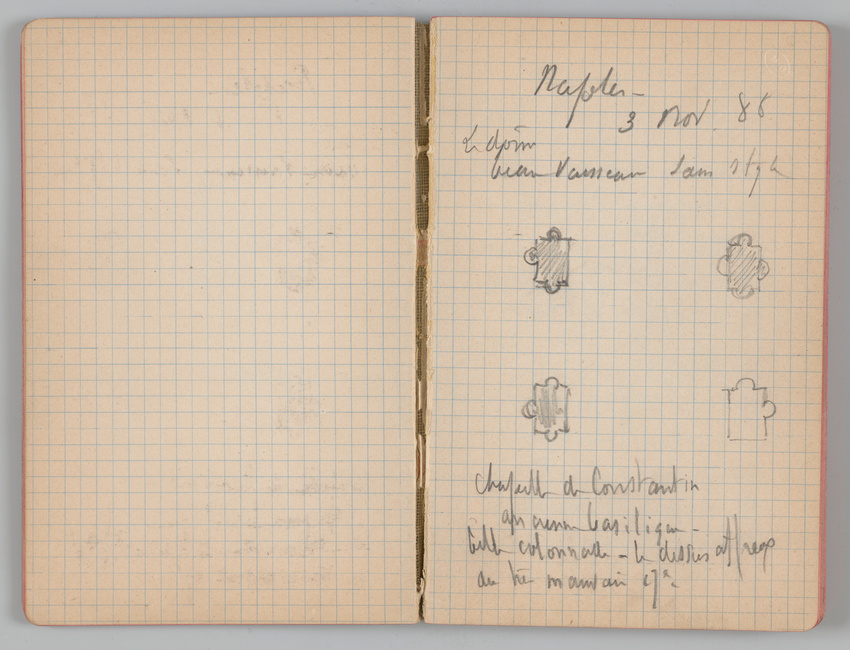 Naples –
3 Nov. 86
Le dôme
beau vaisseau sans style
chapelle de Constantin
ancienne basilique –
belle colonnade – le dessus affreux
du très mauvais 17e.